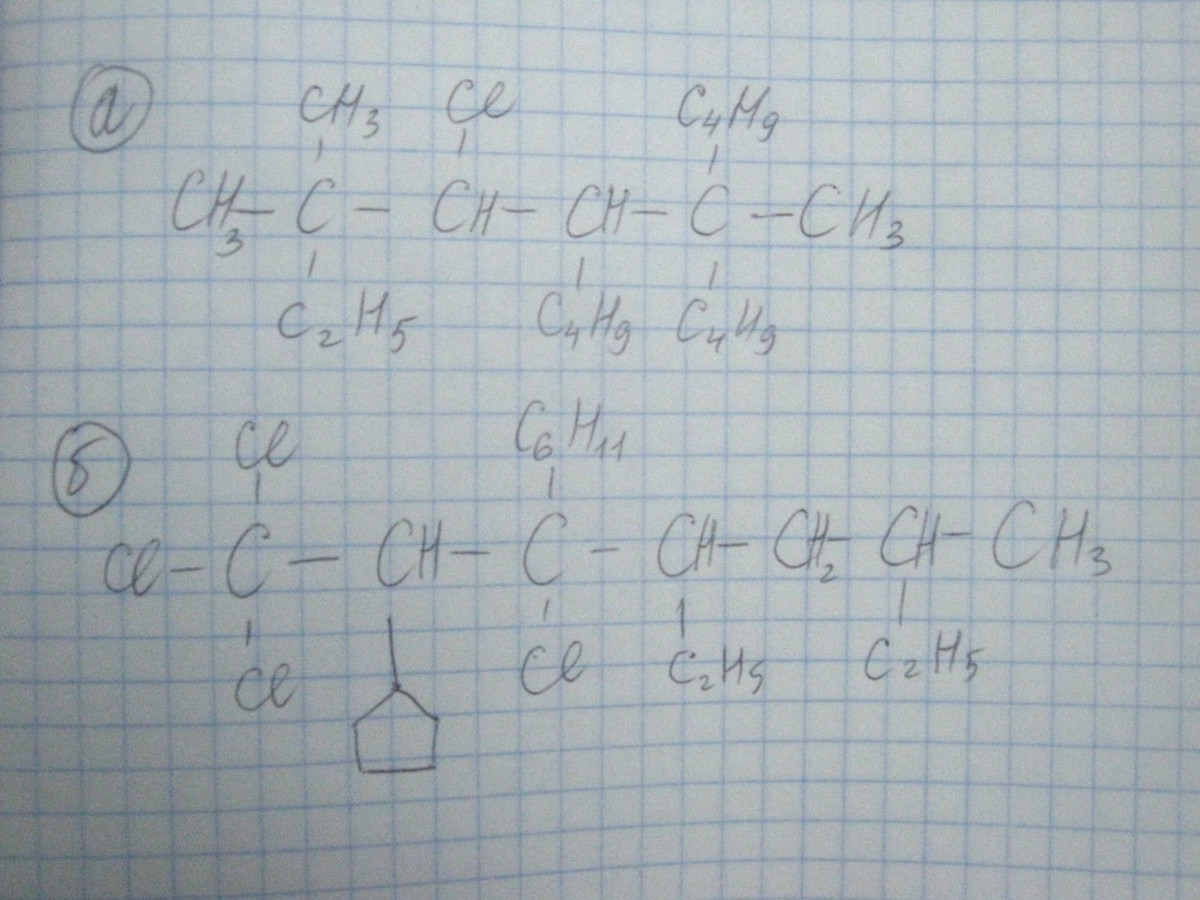 а
CH3 Cl C4H9
CH3 — C — CH — CH — C — CH3
C2H5 C4H9 C4H9
б
Cl C6H11
Cl — C — CH — C — CH — CH2 — CH — CH3
Cl Cl C2H5 C2H5